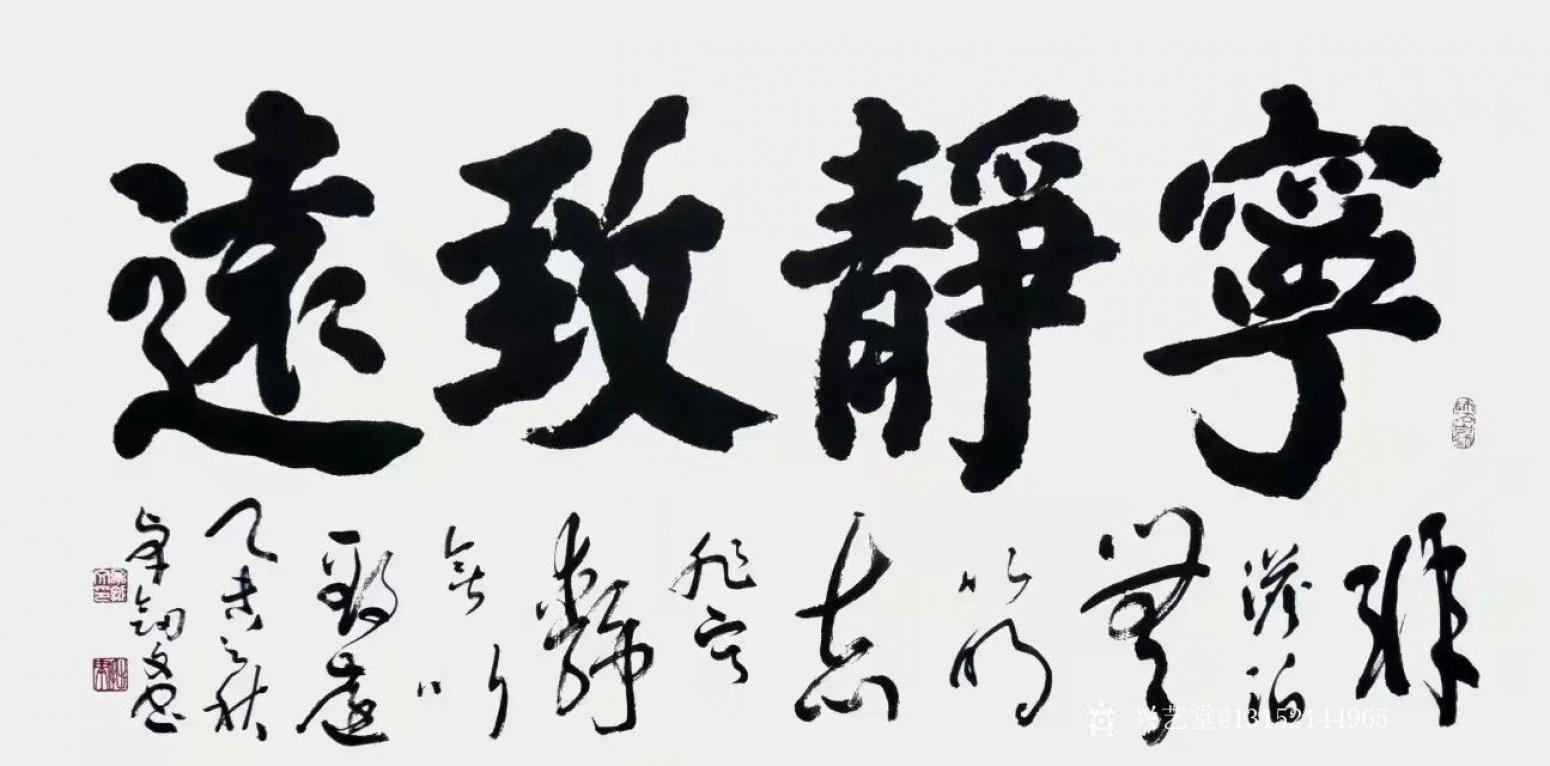 寧靜致遠
非
澹泊
無
以明
志
非寧
靜
無以
致遠
乙未之秋
兴艺堂@13152144965